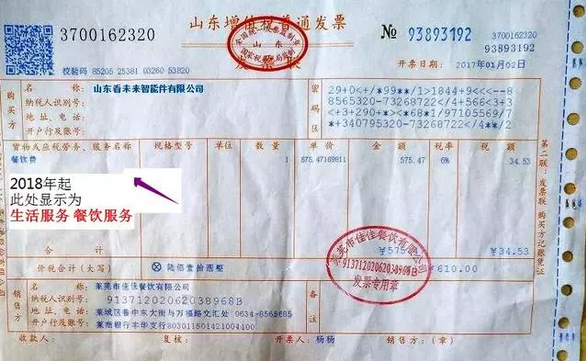 3700162320
山东增值税普通发票
№ 93893192
93893192
校验码 85205 25381 03260 53820
开票日期： 2017年01月02日
全国统一发票监制章
山东
国家税务局监制
购买方
名 称： 山东看未来智能件有限公司
纳税人识别号：
地址、电话：
开户行及账号：
密码区
29+0<+/*99**/1>1844+9<<<--8
8565320-73268722/4+566<3+3
<+3+290+*><*68*1/97105569/7
*+340795320-73268722/4**/2
货物或应税劳务、服务名称 规格型号 单位 数量 单价 金额 税率 税额
餐饮费 1 575.47169811 575.47 6% 34.53
2018年起
此处显示为
生活服务 餐饮服务
合计 ¥575 ¥34.53
价税合计（大写） ⊗ 陆佰壹拾圆整 ¥610.00
莱芜市佳佳餐饮有限公司
91371202062038968B
发票专用章
销售方
名 称： 莱芜市佳佳餐饮有限公司
纳税人识别号： 91371202062038968B
地址、电话： 莱城区鲁中东大街与万福路交汇处 0634-8565685
开户行及账号： 莱商银行丰华支行803011501421004400
备注
收款人： 复核： 开票人： 杨杨 销售方：（章）
第二联：发票联 购买方记账凭证